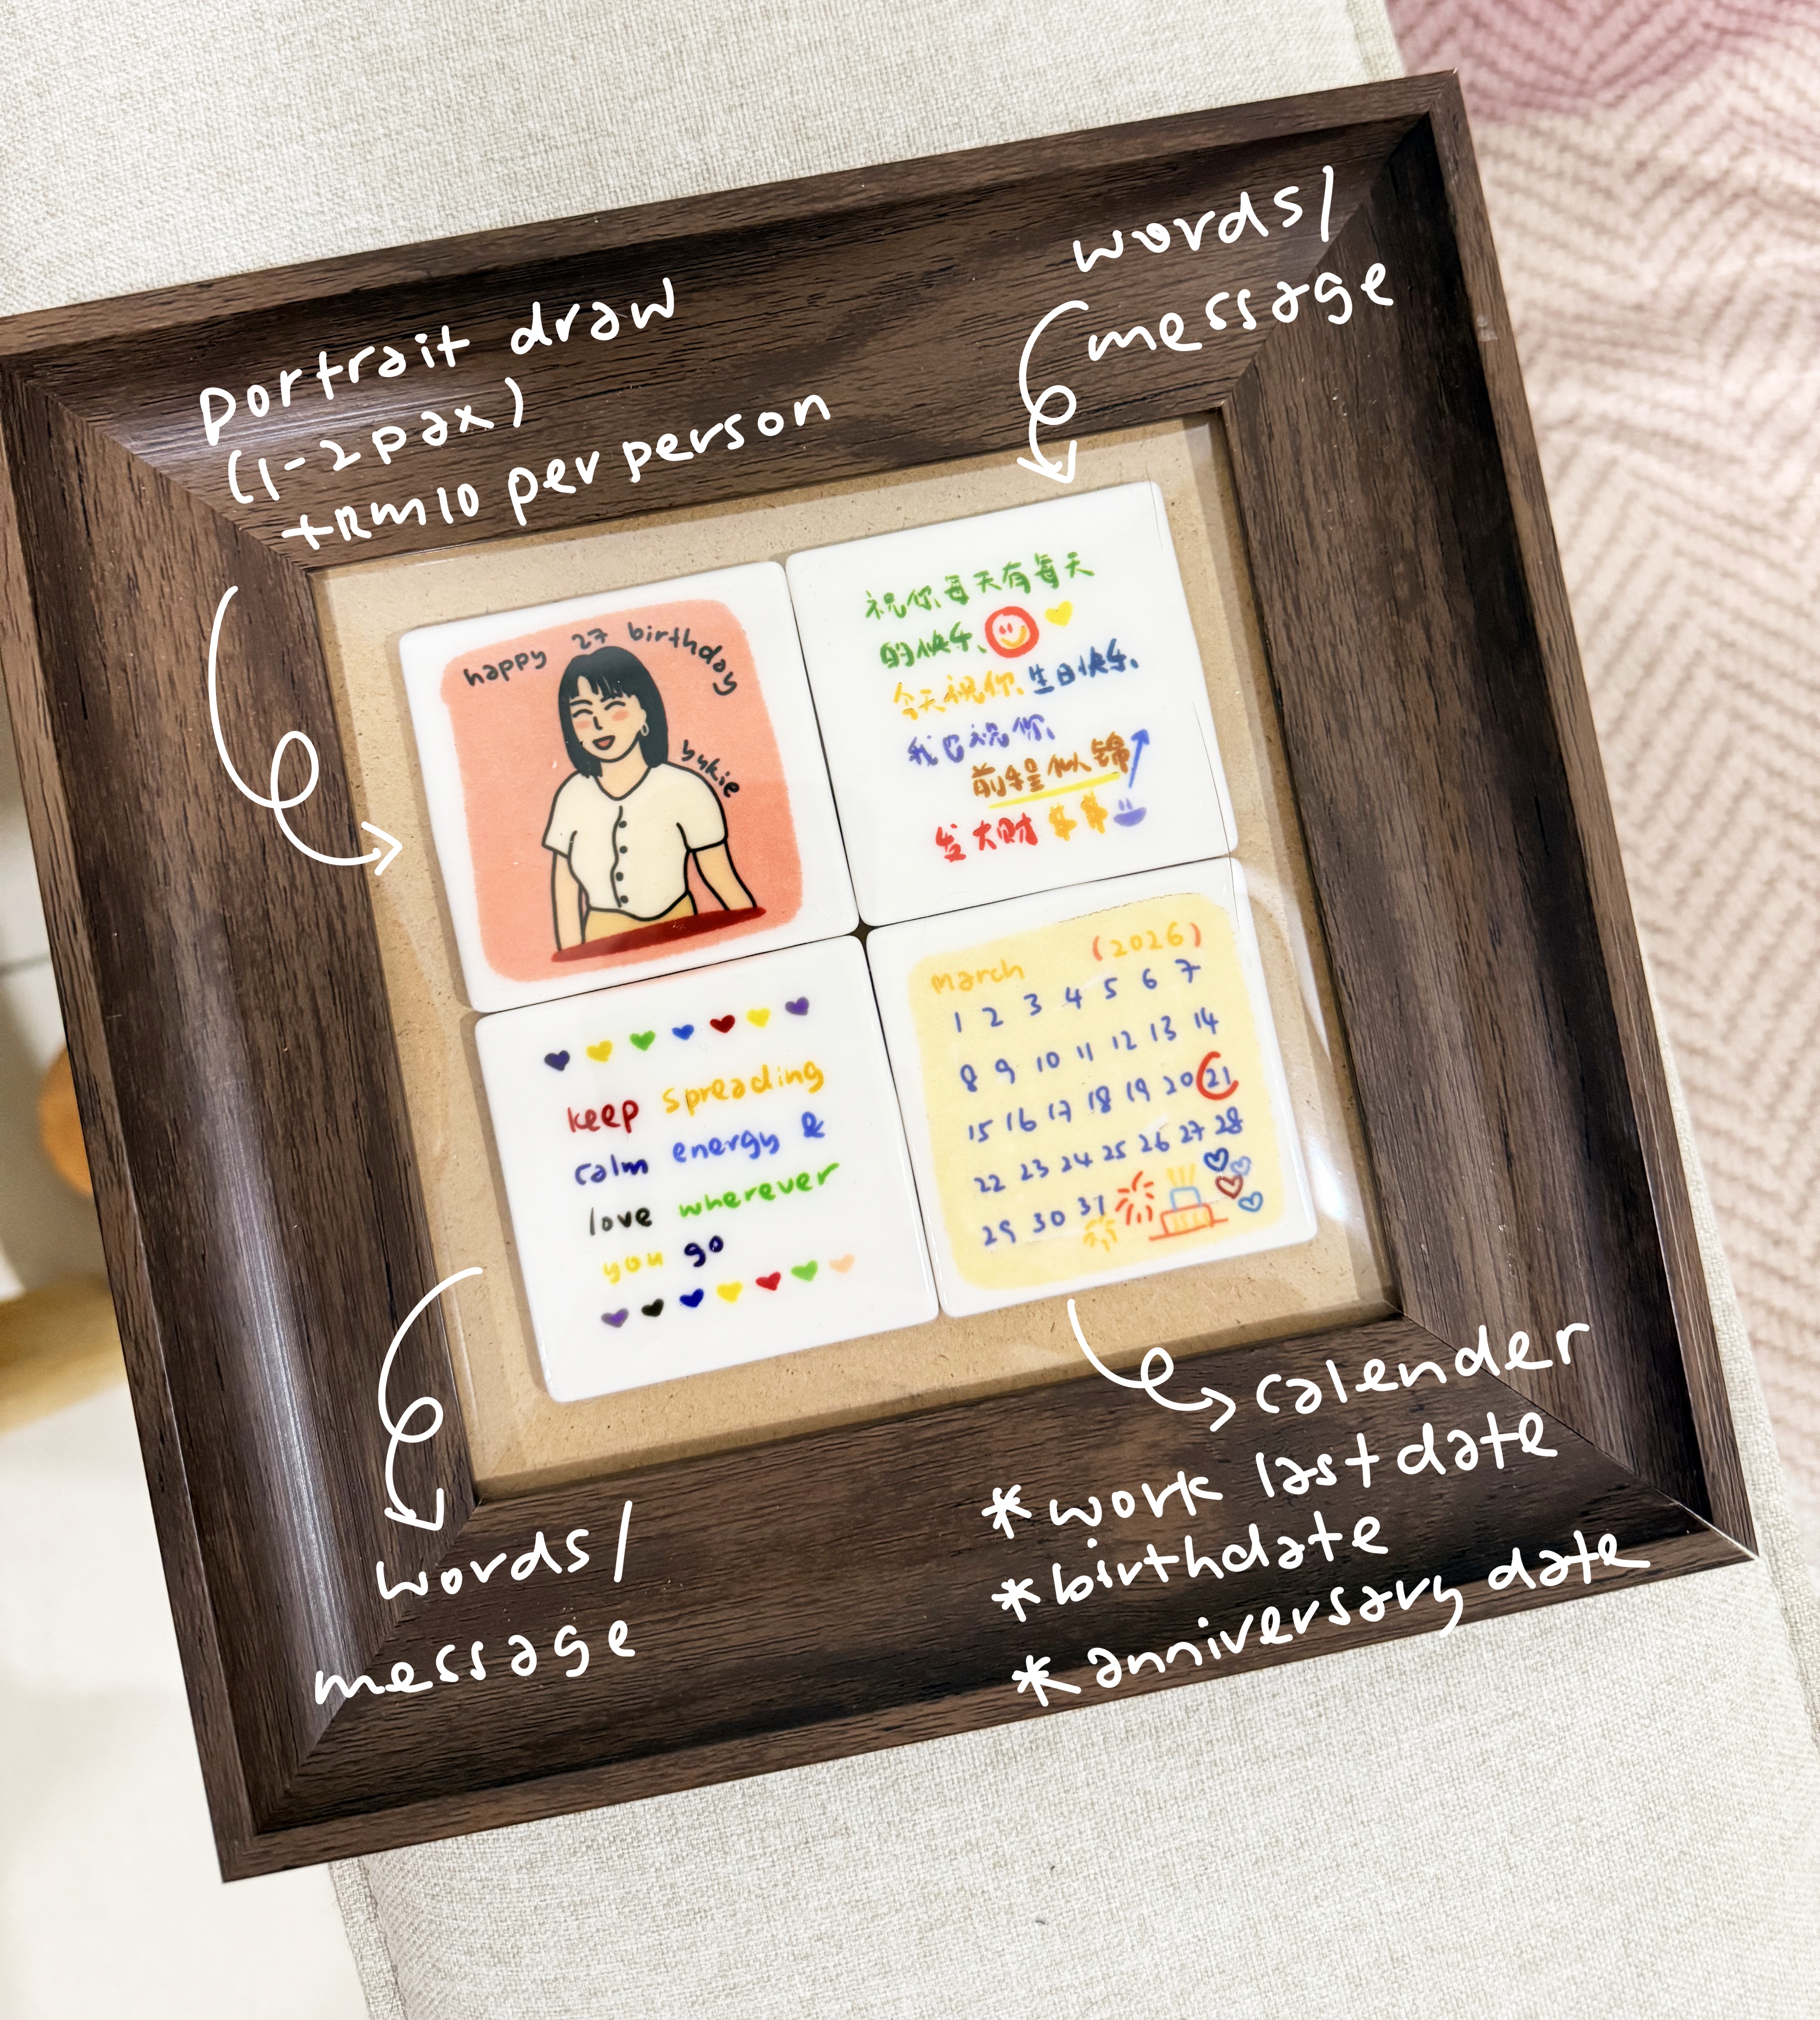 portrait draw
(1-2 pax)
+RM10 per person
words/
message
happy 27 birthday
bykie
祝你每天有每天
的快乐
今天祝你生日快乐
我也祝你
前程似锦
发大财 $ $
keep spreading
calm energy &
love wherever
you go
march (2026)
1 2 3 4 5 6 7
8 9 10 11 12 13 14
15 16 17 18 19 20 21
22 23 24 25 26 27 28
29 30 31
words/
message
calender
*work last date
*birthdate
*anniversary date